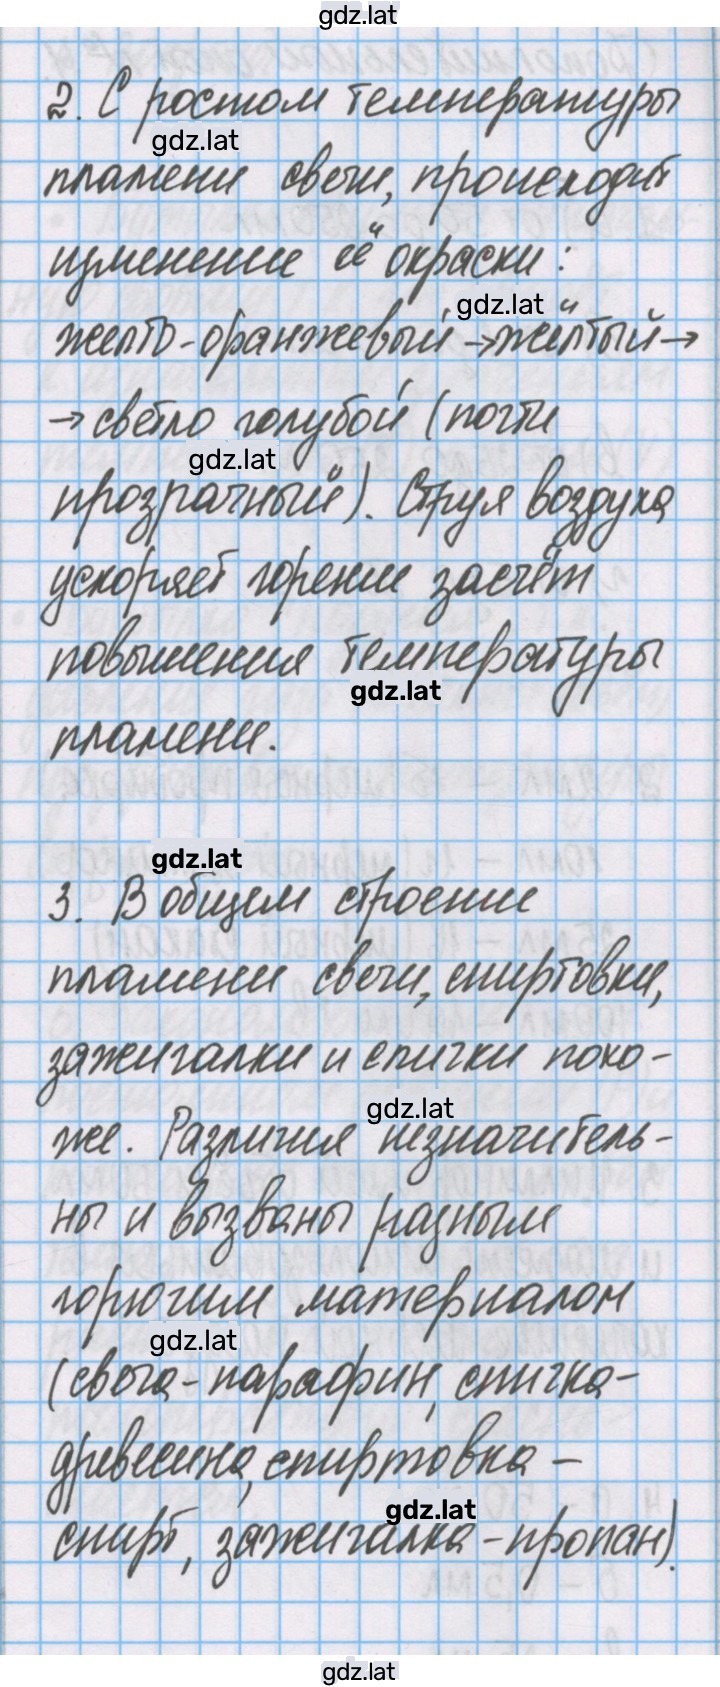 gdz.lat
2. С ростом температуры
gdz.lat
пламени свечи, происходит
изменение её окраски:
gdz.lat
желто-оранжевый → жёлтый →
→ светло голубой (почти
gdz.lat
прозрачный). Струя воздуха
ускоряет горение засчёт
повышения температуры
gdz.lat
пламени.
gdz.lat
3. В общем строение
пламени свечи, спиртовки,
зажигалки и спички похо-
gdz.lat
же. Различия незначитель-
ны и вызваны разным
горючим материалом
gdz.lat
(свеча - парафин, спичка -
древесина, спиртовка -
gdz.lat
спирт, зажигалка - пропан).
gdz.lat